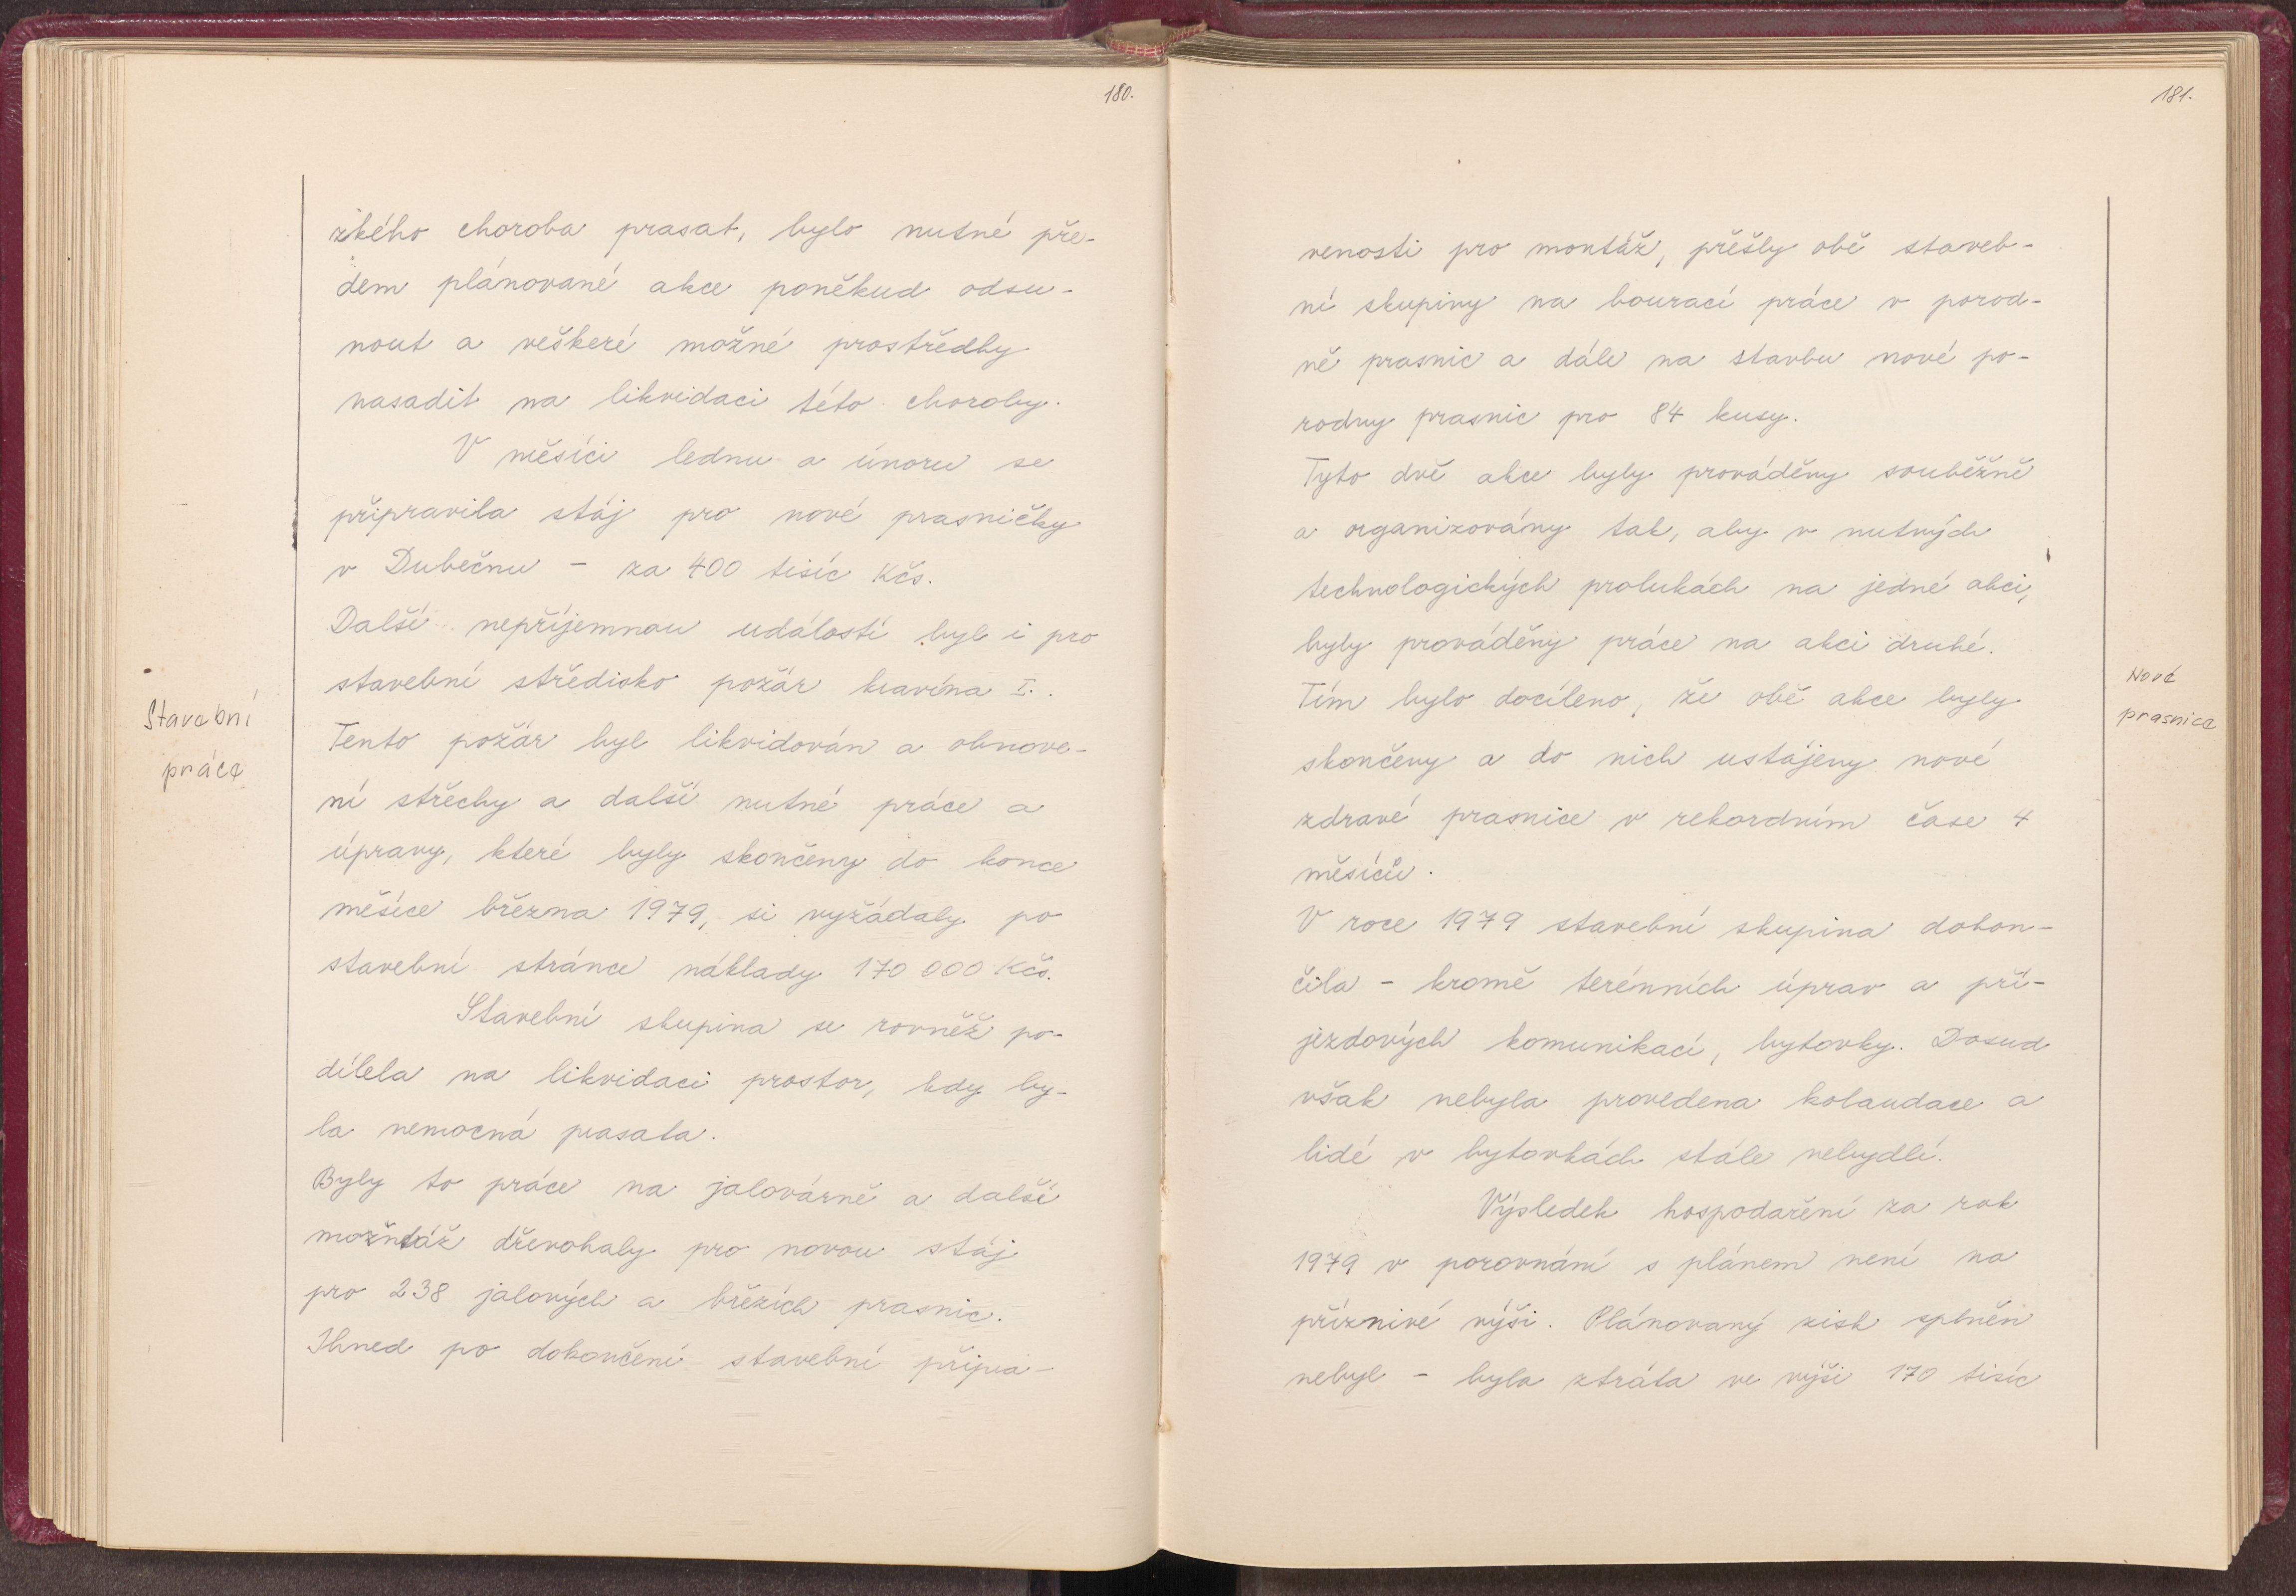 180.
zkého choroba prasat, bylo nutné pře-
dem plánované akce poněkud odsu-
nout a veškeré možné prostředky
nasadit na likvidaci této choroby.
V měsíci lednu a únoru se
připravila stáj pro nové prasničky
v Dubečnu - za 400 tisíc Kčs.
Další nepříjemnou událostí byl i pro
stavební středisko požár kravína I..
Tento požár byl likvidován a obnove-
ní střechy a další nutné práce a
úpravy, které byly skončeny do konce
měsíce března 1979, si vyžádaly po
stavební stránce náklady 170 000 Kčs.
Stavební skupina se rovněž po-
dílela na likvidaci prostor, kdy by-
la nemocná prasata.
Byly to práce na jalovárně a další
montáž dřevohaly pro novou stáj
pro 238 jalových a březích prasnic.
Ihned po dokončení stavební připra-
Stavební
práce
181.
venosti pro montáž, přěšly obě staveb-
ní skupiny na bourací práce v porod-
ně prasnic a dále na stavbu nové po-
rodny prasnic pro 84 kusy.
Tyto dvě akce byly prováděny souběžně
a organizovány tak, aby v nutných
technologických prolukách na jedné akci,
byly prováděny práce na akci druhé.
Tím bylo docíleno, že obě akce byly
skončeny a do nich ustájeny nové
zdravé prasnice v rekordním čase 4
měsíců.
V roce 1979 stavební skupina dokon-
čila - kromě terénních úprav a pří-
jezdových komunikací, bytovky. Dosud
však nebyla provedena kolaudace a
lidé v bytovkách stále nebydlí.
Výsledek hospodaření za rok
1979 v porovnání s plánem není na
příznivé výši. Plánovaný zisk splněn
nebyl - byla ztráta ve výši 170 tisíc
Nové
prasnice